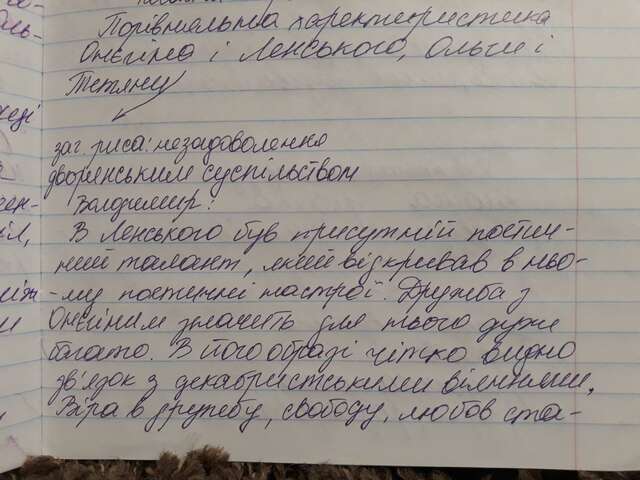 Порівняльна характеристика
Онєгіна і Ленського, Ольги і
Тетяни
заг. риса: незадоволення
дворянським суспільством
Володимир:
В Ленського був присутній поетич-
ний талант, який відкривав в ньо-
-му поетичні настрої. Дружба з
Онєгіним значить для нього дуже
багато. В його образі чітко видно
зв'язок з декабристськими віяннями.
Віра в дружбу, свободу, любов ста-